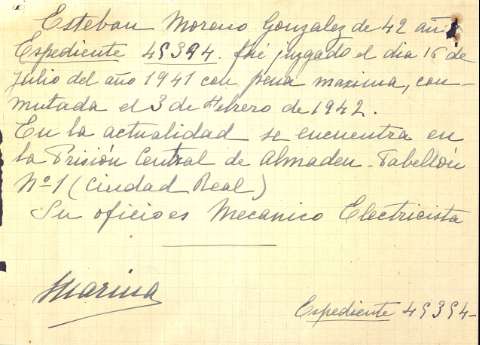 Esteban Moreno Gonzalez de 42 añ
Espediente 49394. fué juzgado el dia 16 de
Julio del año 1941 con pena maxima, con-
mutada el 3 de Febrero de 1942.
En la actualidad se encuentra en
la Prisión Central de Almaden - Pabellón
Nº 1 (Ciudad Real)
Su oficio es Mecanico Electricista
Marina
Expediente 49394-